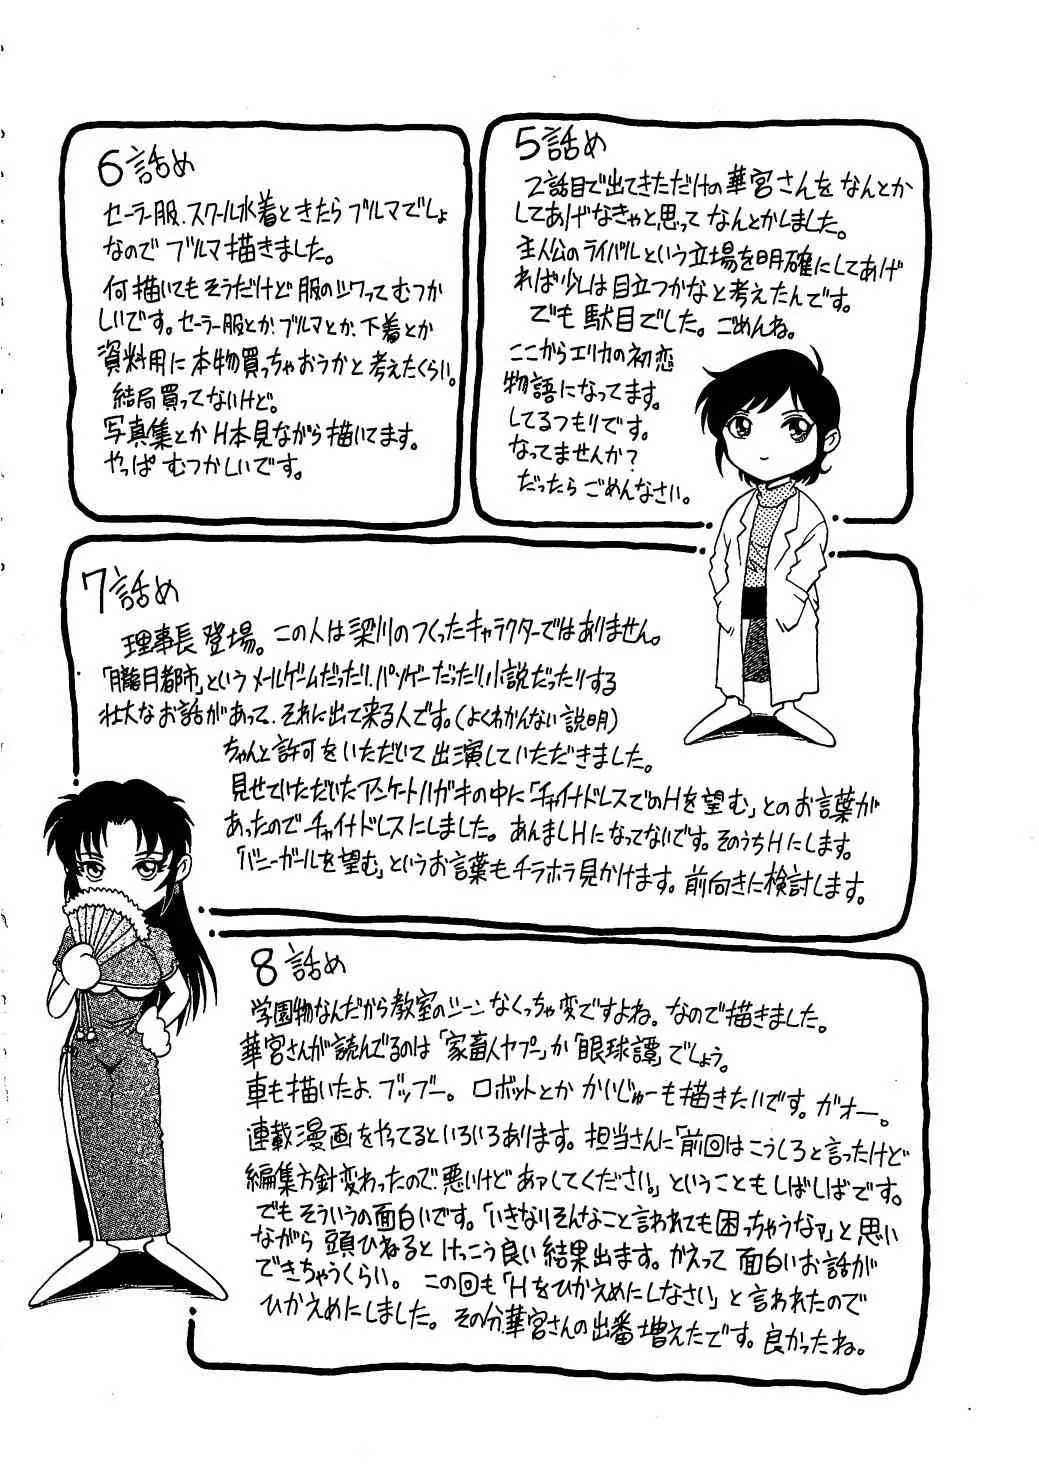 5話め
2話目で出てきただけの華宮さんをなんとか
してあげなきゃと思ってなんとかしました。
主人公のライバルという立場を明確にしてあげ
れば少しは目立つかなと考えたんです。
でも駄目でした。ごめんね。
ここからエリカの初恋
物語になってます。
してるつもりです。
なってませんか?
だったらごめんなさい。
6話め
セーラー服、スクール水着ときたらブルマでしょ
なのでブルマ描きました。
何描いてもそうだけど服のシワってむつか
しいです。セーラー服とか、ブルマとか、下着とか
資料用に本物買っちゃおうかと考えたくらい。
結局買ってないけど。
写真集とかH本見ながら描いてます。
やっぱむつかしいです。
7話め
理事長登場。この人は梁川のつくったキャラクターではありません。
「朧月都市」というメールゲームだったり、パソゲーだったり、小説だったりする
壮大なお話があって、それに出て来る人です。(よくわかんない説明)
ちゃんと許可をいただいて出演していただきました。
見せていただいたアンケートハガキの中に「チャイナドレスでのHを望む」とのお言葉が
あったのでチャイナドレスにしました。あんましHになってないです。そのうちHにします。
「バニーガールを望む」というお言葉もチラホラ見かけます。前向きに検討します。
8話め
学園物なんだから教室のシーンなくっちゃ変ですよね。なので描きました。
華宮さんが読んでるのは「家畜人ヤプー」か「眼球譚」でしょう。
車も描いたよ、ブッブー。ロボットとかかいじゅーも描きたいです。ガオー。
連載漫画をやってるといろいろあります。担当さんに「前回はこうしろと言ったけど
編集方針変わったので、悪いけどあァしてください。」ということもしばしばです。
でもそういうの面白いです。「いきなりそんなこと言われても困っちゃうなァ」と思い
ながら頭ひねるとけっこう良い結果出ます。かえって面白いお話が
できちゃうくらい。この回も「Hをひかえめにしなさい」と言われたので
ひかえめにしました。その分華宮さんの出番増えたです。良かったね。